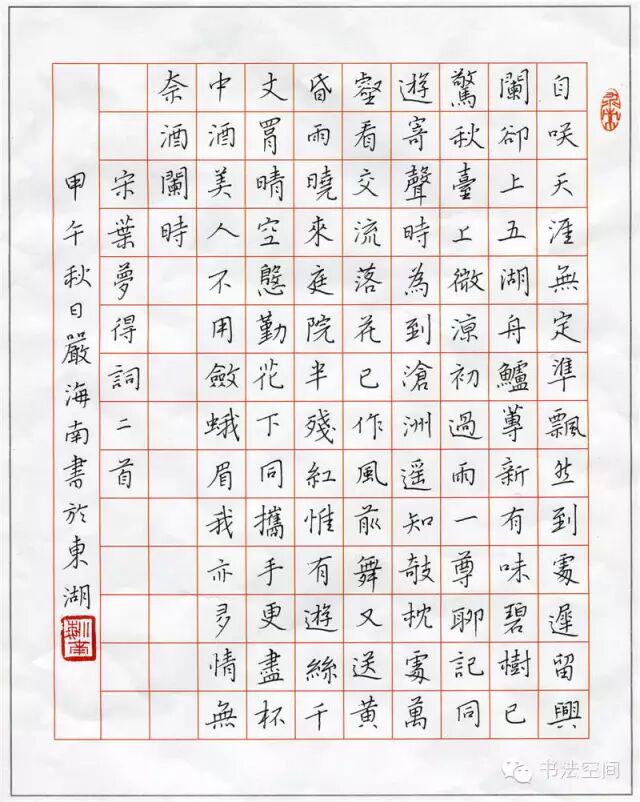 自咲天涯無定準飄然到處遲留興
闌卻上五湖舟鱸蓴新有味碧樹已
驚秋臺上微涼初過雨一尊聊記同
遊寄聲時為到滄洲遥知攲枕處萬
壑看交流落花已作風前舞又送黃
昏雨曉來庭院半殘紅惟有遊絲千
丈罥晴空慇勤花下同攜手更盡杯
中酒美人不用斂蛾眉我亦多情無
奈酒闌時
宋葉夢得詞二首
甲午秋日嚴海南書於東湖
书法空间